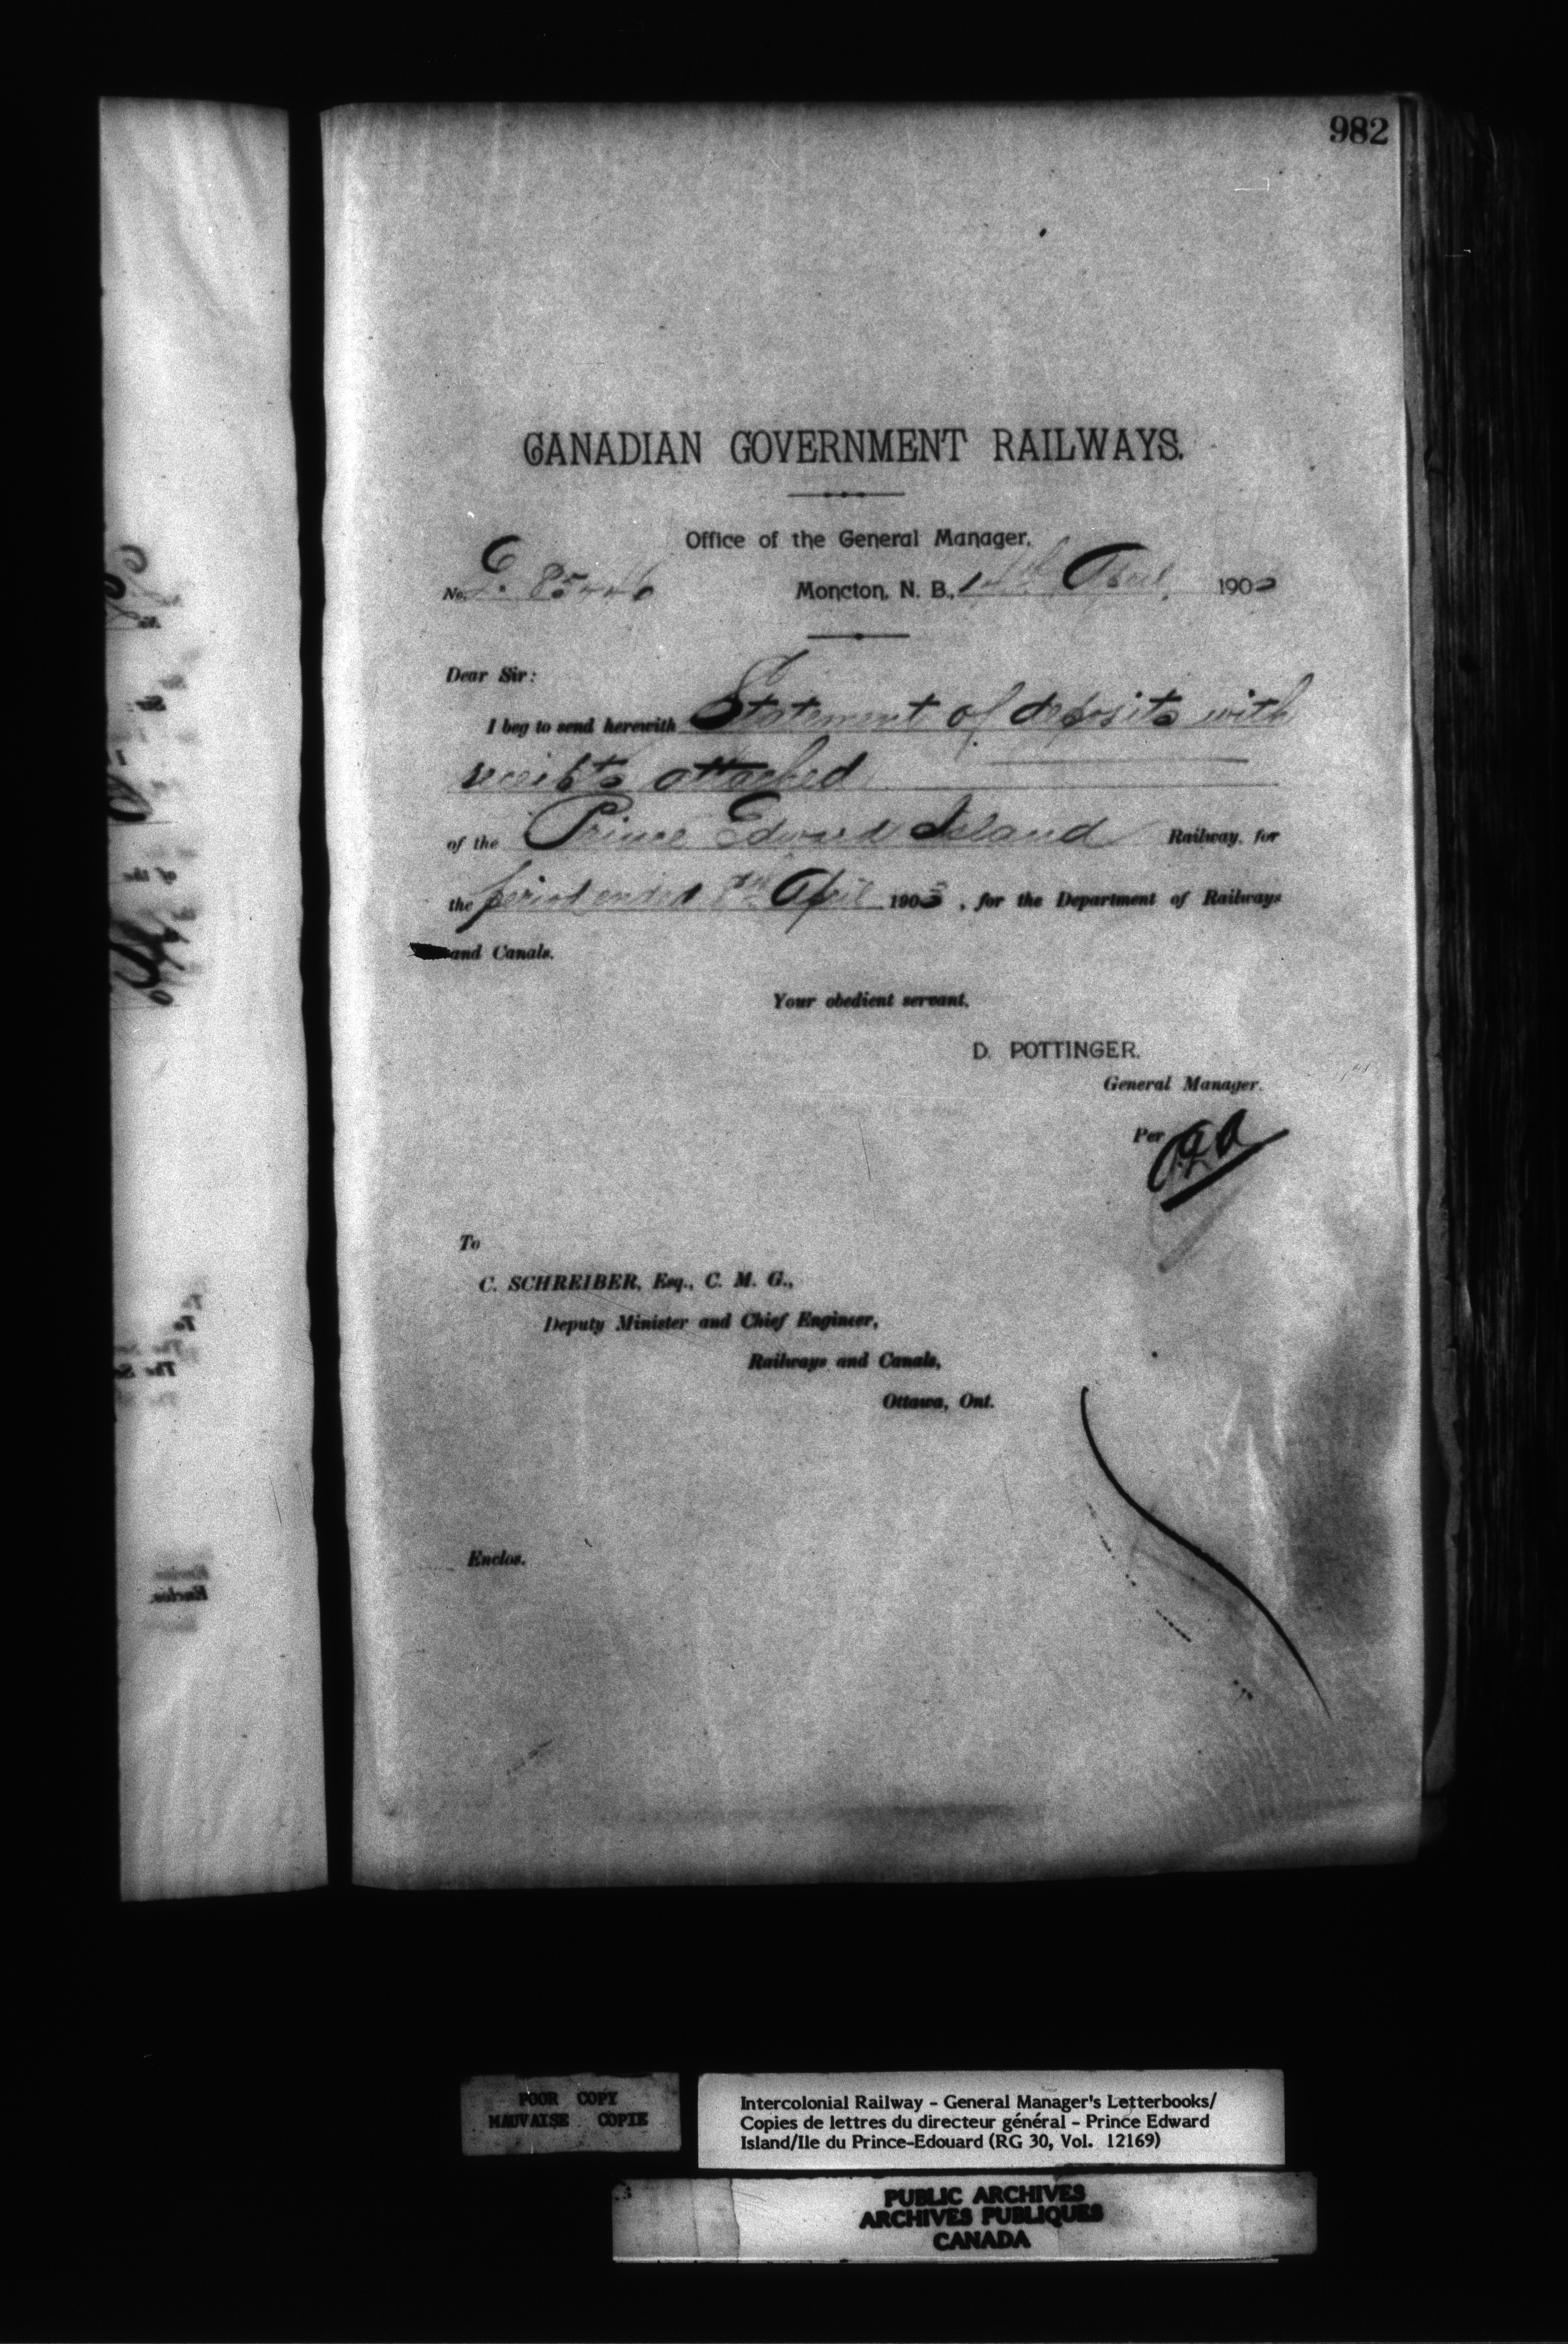 982
CANADIAN GOVERNMENT RAILWAYS.
Office of the General Manager,
No.
Moncton, N. B., April 190
Dear Sir:
I beg to send herewith Statement of deposits with
receipts attached
of the Prince Edward Island Railway, for
the period ended April 1903, for the Department of Railways
and Canals.
Your obedient servant,
D. POTTINGER.
General Manager.
Per
To
C. SCHREIBER, Esq., C. M. G.,
Deputy Minister and Chief Engineer,
Railways and Canals,
Ottawa, Ont.
Enclos.
POOR COPY
MAUVAISE COPIE
Intercolonial Railway - General Manager's Letterbooks/
Copies de lettres du directeur général - Prince Edward
Island/Ile du Prince-Edouard (RG 30, Vol. 12169)
PUBLIC ARCHIVES
ARCHIVES PUBLIQUES
CANADA